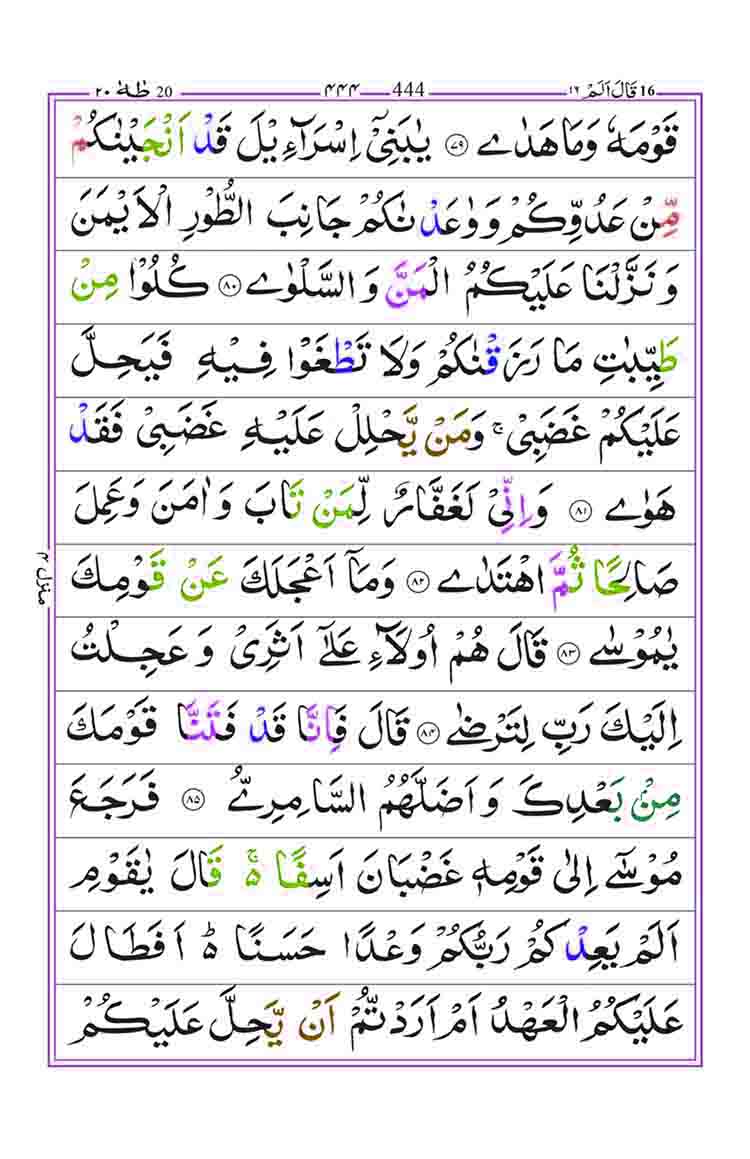 20 طٰهٰ ٢٠ 444 ٤٤٤ 16 قَالَ اَلَمْ ١٦
قَوْمَهٗ وَمَا هَدٰى ۝٧٩ يٰبَنِىْۤ اِسْرَآءِيْلَ قَدْ اَنْجَيْنٰكُمْ
مِّنْ عَدُوِّكُمْ وَوٰعَدْنٰكُمْ جَانِبَ الطُّوْرِ الْاَيْمَنَ
وَنَزَّلْنَا عَلَيْكُمُ الْمَنَّ وَالسَّلْوٰى ۝٨٠ كُلُوْا مِنْ
طَيِّبٰتِ مَا رَزَقْنٰكُمْ وَلَا تَطْغَوْا فِيْهِ فَيَحِلَّ
عَلَيْكُمْ غَضَبِىْ ۚ وَمَنْ يَّحْلِلْ عَلَيْهِ غَضَبِىْ فَقَدْ
هَوٰى ۝٨١ وَاِنِّىْ لَغَفَّارٌ لِّمَنْ تَابَ وَاٰمَنَ وَعَمِلَ
صَالِحًا ثُمَّ اهْتَدٰى ۝٨٢ وَمَاۤ اَعْجَلَكَ عَنْ قَوْمِكَ
يٰمُوْسٰى ۝٨٣ قَالَ هُمْ اُولَآءِ عَلٰٓى اَثَرِىْ وَعَجِلْتُ
اِلَيْكَ رَبِّ لِتَرْضٰى ۝٨٤ قَالَ فَاِنَّا قَدْ فَتَنَّا قَوْمَكَ
مِنْۢ بَعْدِكَ وَاَضَلَّهُمُ السَّامِرِىُّ ۝٨٥ فَرَجَعَ
مُوْسٰٓى اِلٰى قَوْمِهٖ غَضْبَانَ اَسِفًا ۚ۬ قَالَ يٰقَوْمِ
اَلَمْ يَعِدْكُمْ رَبُّكُمْ وَعْدًا حَسَنًا ؕ۬ اَفَطَالَ
عَلَيْكُمُ الْعَهْدُ اَمْ اَرَدْتُّمْ اَنْ يَّحِلَّ عَلَيْكُمْ
منزل ٤